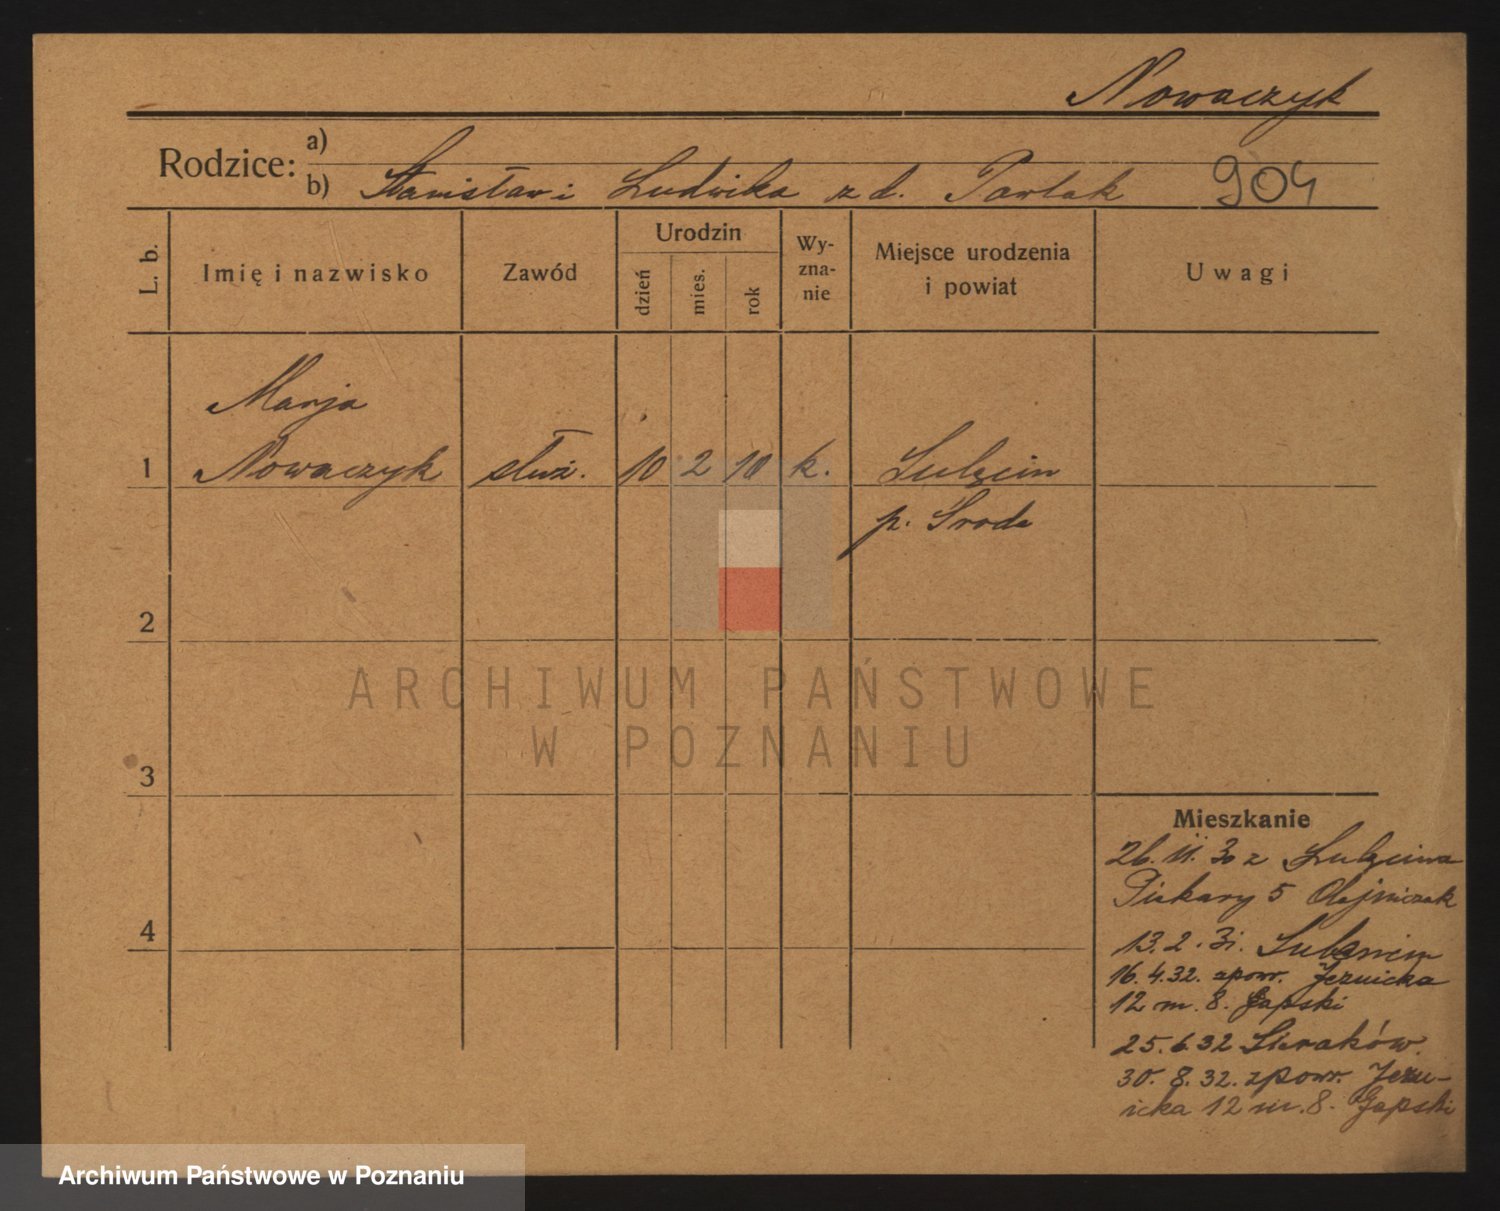 Nowaczyk
Rodzice:
a)
b) Stanisław i Ludwika z d. Pawlak 904
L. b.
Imię i nazwisko
Zawód
Urodzin
dzień
mies.
rok
Wy-
zna-
nie
Miejsce urodzenia
i powiat
Uwagi
Marja
1 Nowaczyk służ. 10 2 10 k.
p. Środa
2
3
4
ARCHIWUM PAŃSTWOWE
W POZNANIU
Mieszkanie
26. 11. 30 z
Piekary 5 Olejniczak
13. 2. 31.
16. 4. 32. zpowr. Jezuicka
12 m. 8. Gapski
25. 6. 32 Sieraków.
30. 8. 32. zpowr. Jezu-
icka 12 m. 8. Gapski
Archiwum Państwowe w Poznaniu